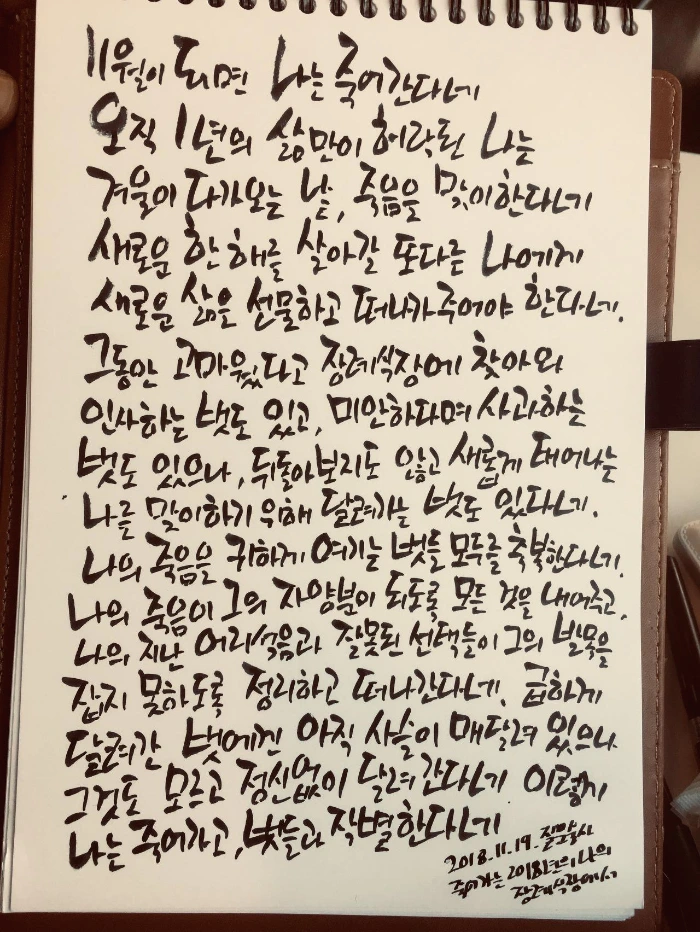 11월이 되면 나는 죽어간다네
오직 1년의 삶만이 허락된 나는
겨울이 다가오는 날, 죽음을 맞이한다네
새로운 한 해를 살아갈 또다른 나에게
새로운 삶을 선물하고 떠나가주어야 한다네.
그동안 고마웠다고 장례식장에 찾아와
인사하는 벗도 있고, 미안하다며 사과하는
벗도 있으나, 뒤돌아보지도 않고 새롭게 태어나는
나를 맞이하기 위해 달려가는 벗도 있다네.
나의 죽음을 귀하게 여기는 벗들 모두를 축복한다네.
나의 죽음이 그의 자양분이 되도록 모든 것을 내어주고,
나의 지난 어리석음과 잘못된 선택들이 그의 발목을
잡지 못하도록 정리하고 떠나간다네. 급하게
달려간 벗에겐 아직 사슬이 매달려 있으나
그것도 모르고 정신없이 달려간다네 이렇게
나는 죽어가고, 벗들과 작별한다네
2018.11.19.
죽어가는 2018년의 나의
장례식장에서